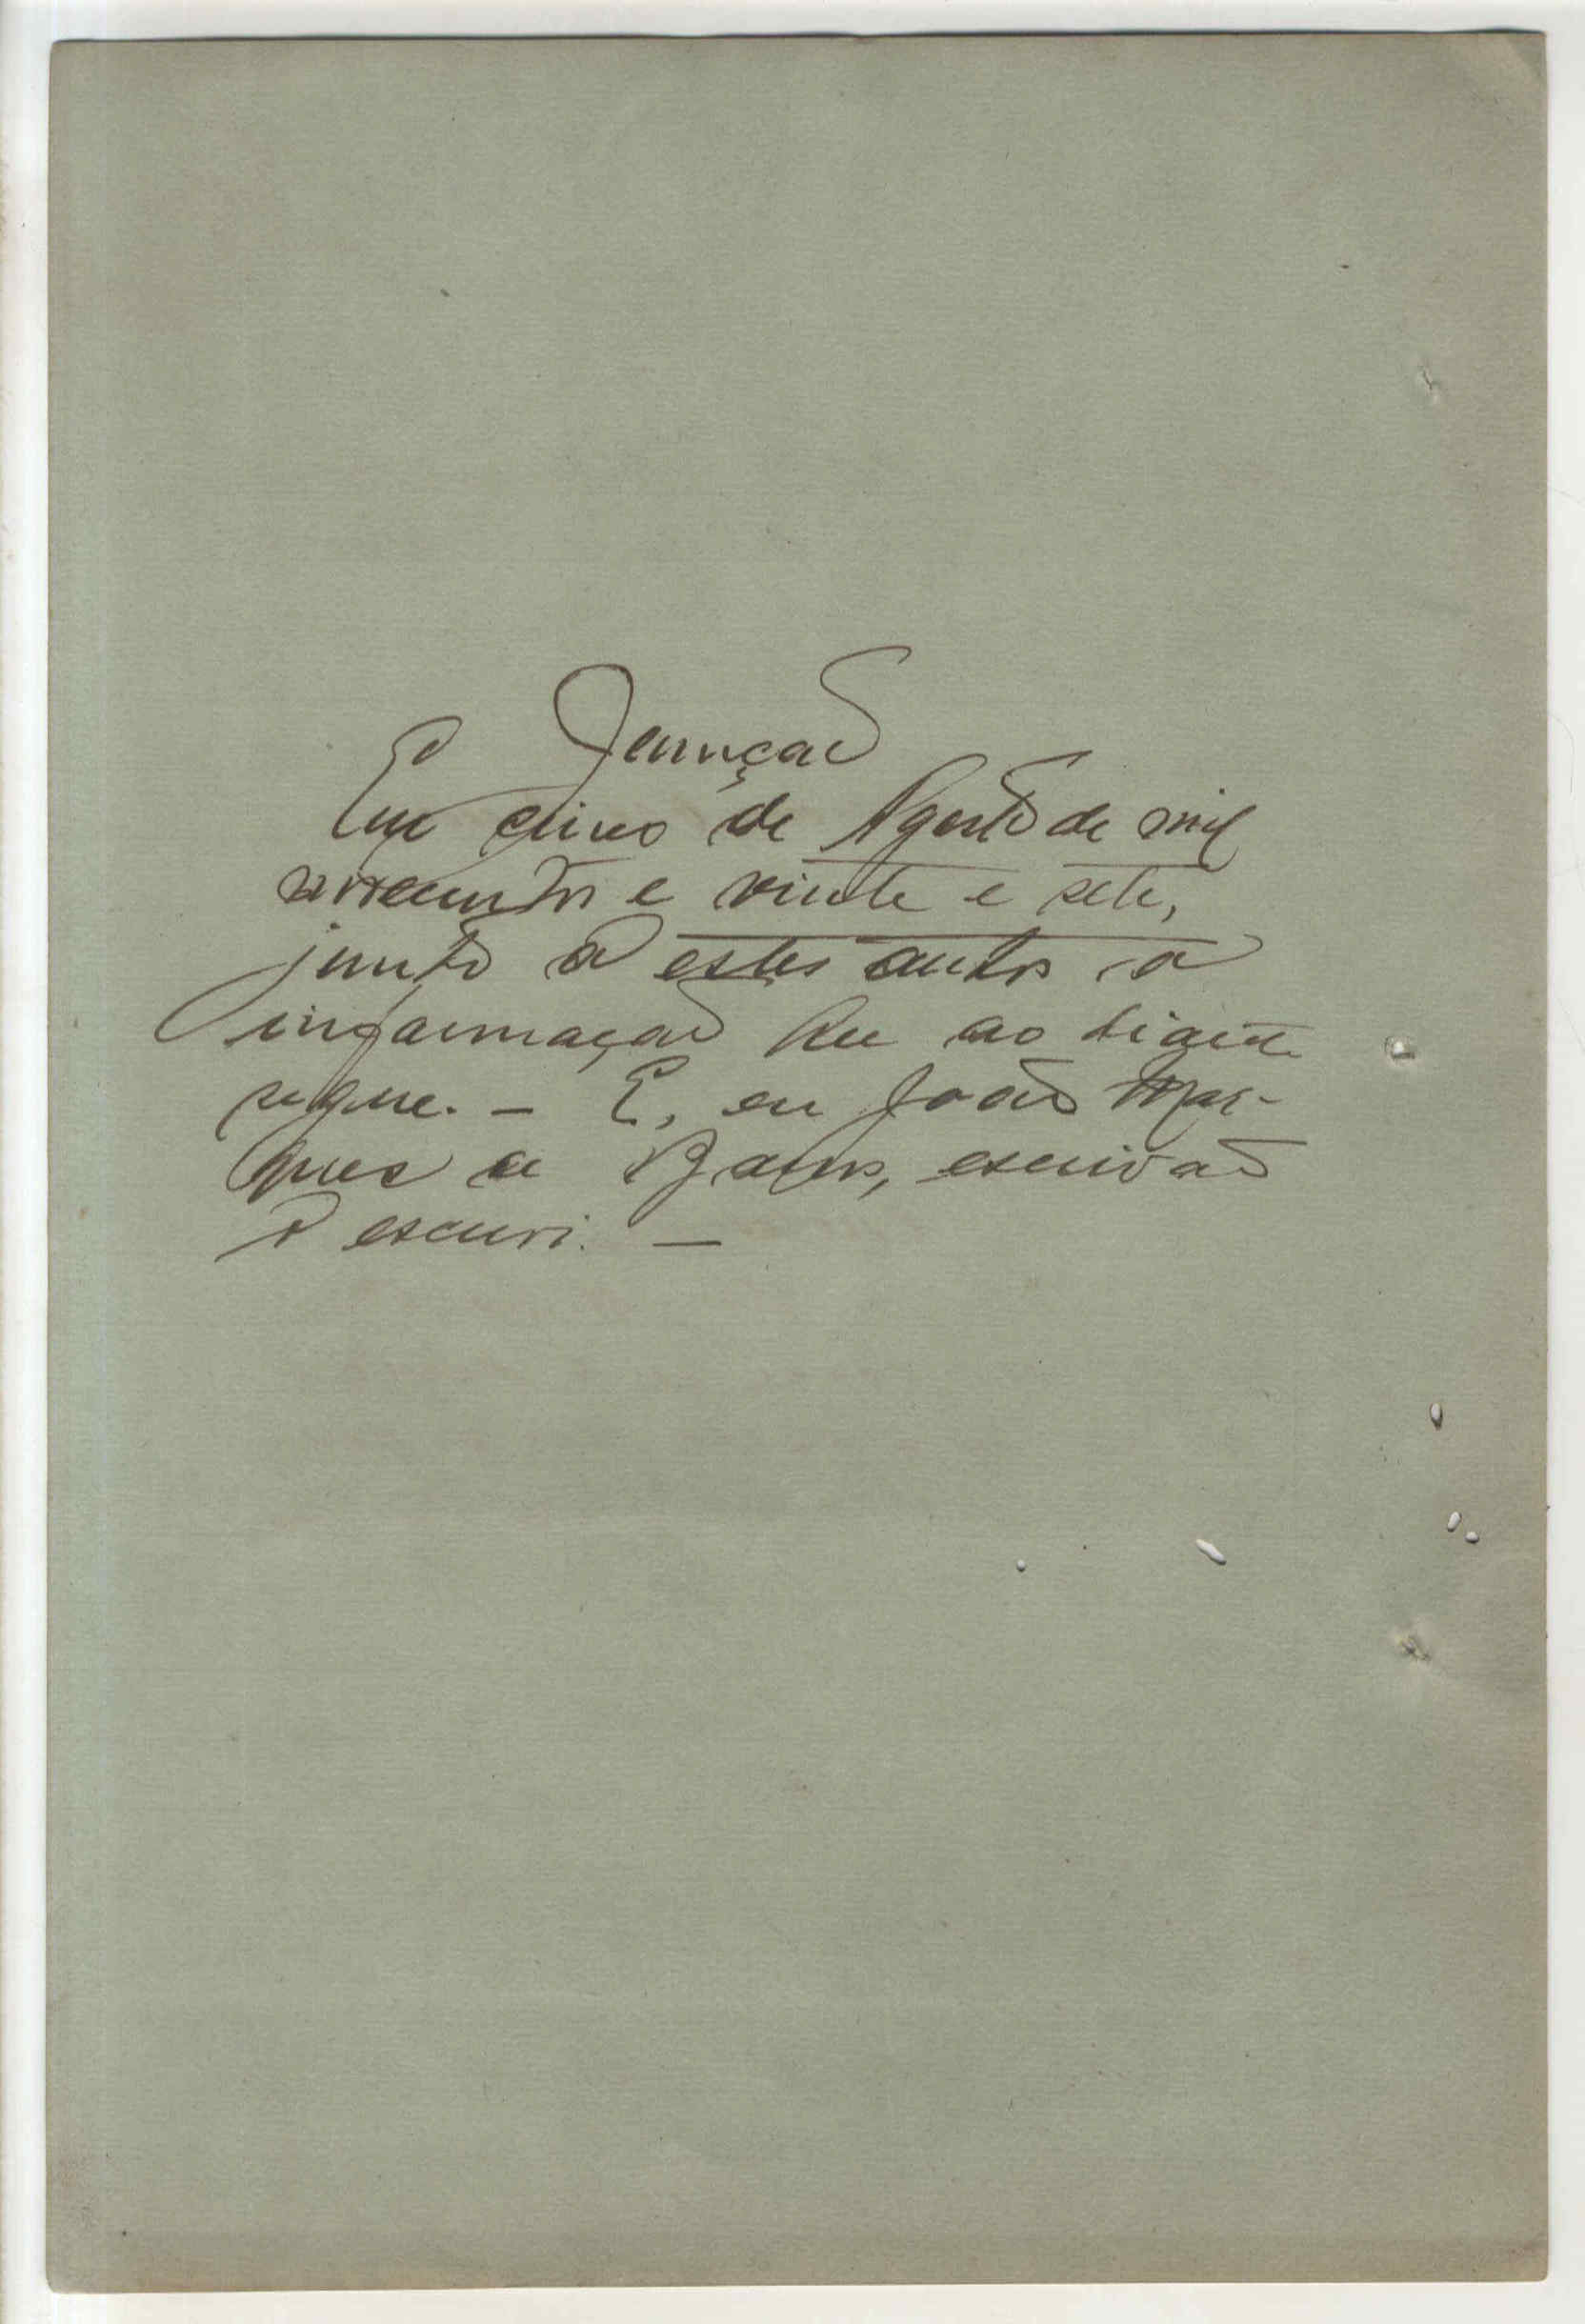 Juncção
Em cinco de Agosto de mil
novecentos e vinte e sete,
junto a estes autos a
informação que ao diante
segue. - E, eu João Mar-
ques de escrivão
o escrevi. -